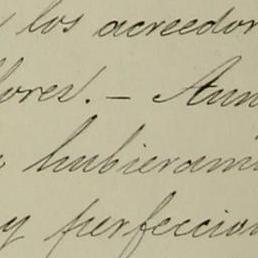 los acreedor
lores. — Aun
hubieram
y perfeccion